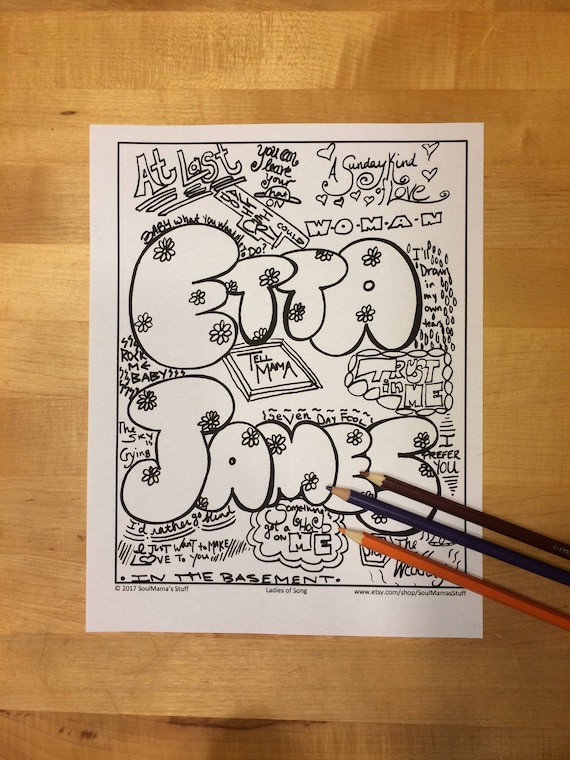 At Last
You can
leave
your
hat
ON
A Sunday Kind
of Love
ALL I COULD
DO WAS
CRY
W-O-M-A-N
BABY What You Want Me
to DO?
I'll
Drown
in
my
own
tears
ETTA
ROCK
ME
BABY
TELL
MAMA
TRUST
in
ME
JAMES
SEVEN DAY FOOL
The
SKY
is
Crying
I
PREFER
YOU
I'd rather go blind
Something's
got a HOLD
on ME
I JUST WANT to MAKE
LOVE To YOU
The
Wallflower
IN THE BASEMENT
© 2017 SoulMama's Stuff
Ladies of Song
www.etsy.com/shop/SoulMamasStuff